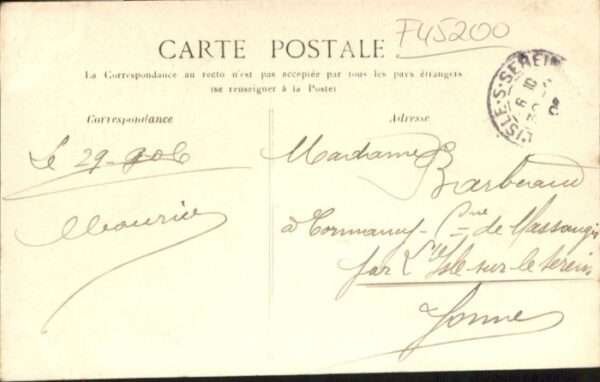 F45200
CARTE POSTALE
La Correspondance au recto n'est pas acceptée par tous les pays étrangers
(se renseigner à la Poste)
Correspondance
Adresse
L'ISLE-S-SEREIN
Le 29-9-06
Maurice
Madame
Barbeaud
à Cormancy - Cne de Massangis
par L'Isle-sur-le Serein
Yonne